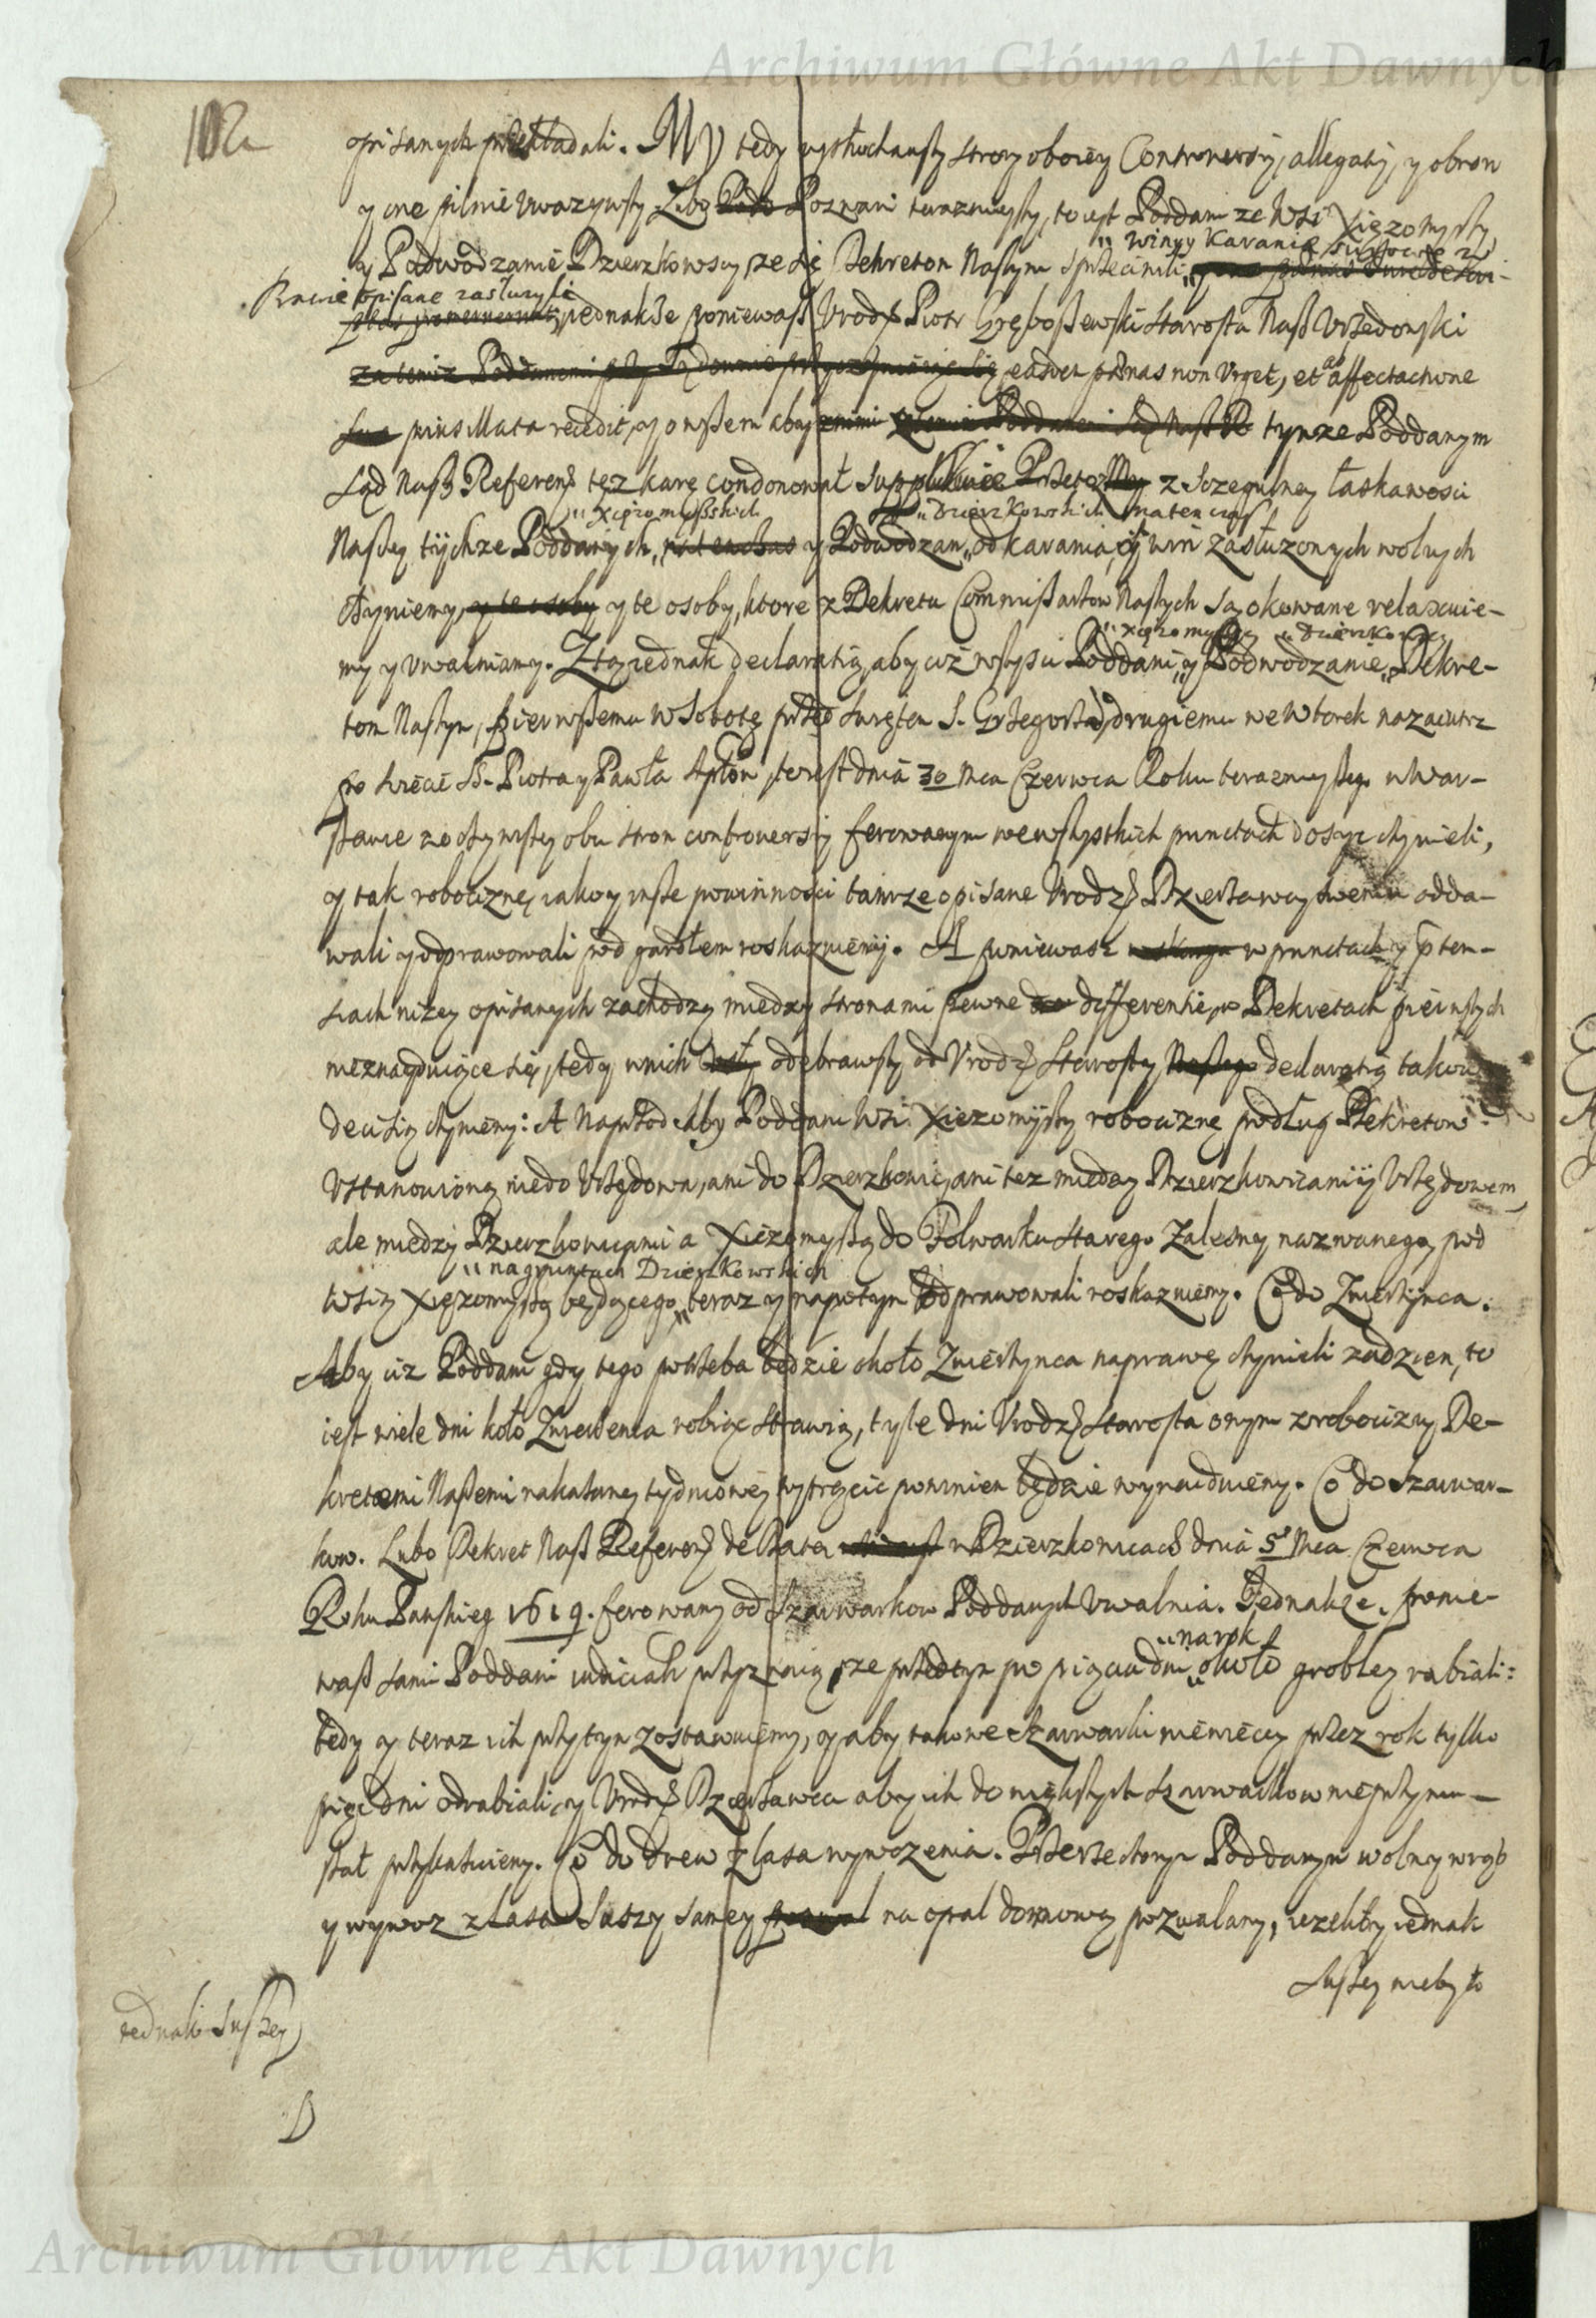 Archiwum Główne Akt Dawnych
102
opisanych przekładali. My tedy wysłuchawszy stron oboiey Controversiy, allegatiy, y obron
y one pilnie uwazywszy Lubo Pozwani terazniejszy, to iest Poddani ze Wsi Xięzomyszy
„ winy y karanie surowie w
y Podwodzanie Dzierzkowscy, ze się Dekretom Naszym sprzeciwili
Prawie opisane zasłuzyli
jednakze poniewasz Urodz Piotr Gręboszewski Starosta Nasz Urzędowski
eadem pœnas non urget, et ab affectatione
pœnis Mata recedit, y owszem aby tymze Poddanym
Sąd Nasz Referens tęz karę condonował supplikuie Przeto z Szczegulney łaskawosci
„ Xięzomyskich „ Dzierzkowskich natenczas
Naszey tychze Poddanych, y Podwodzan, od karania, y win zasłuzonych wolnych
czyniemy, y te osoby, ktore z Dekretu Commissarzow Naszych są okowane relaxuie-
„ Xięzomyscy „ Dzierzkowscy
my y uwalniamy. Z tą iednak declaratią, aby ciz wszysci Poddani, y Podwodzanie, Dekre-
tom Naszym, pierwszemu w Sobotę przed swiętem S. Grzegorza, drugiemu we Wtorek nazaiutrz
po swięcie SS. Piotra y Pawła Apłow, to iest dnia 30 Mca Czerwca Roku terazniejszego w War-
szawie z oczywistey obu stron controversiy ferowanym we wszystkich punctach dosyc czynieli,
y tak robociznę, iako y insze powinnosci tamze opisane Urodz Dzierzawcy swemu odda-
wali y odprawowali pod gardłem roskazuiemy. A poniewasz w punctach y preten-
siach nizey opisanych zachodzą miedzy stronami pewne differentie, w Dekretach pierwszych
nieznayduiące się, tedy w nich odebrawszy od Urodz Starosty declaratią takow
decisią czyniemy: A Naprzod Aby Poddani Wsi Xięzomyszy robociznę podług Dekretow
Ustanowioną nie do Urzędowa, ani do Dzierzkowic, ani tez miedzy Dzierzkowicami y Urzędowem,
ale miedzy Dzierzkowicami a Xięzomyszą do Folwarku starego Zalesny nazwanego, pod
„ na gruntach Dzierzkowskich
Wsią Xięzomyszą będącego, teraz y napotym odprawowali roskazuiemy. Co do Zwierzynca.
Aby ciz Poddani gdy tego potrzeba będzie około Zwierzynca naprawę czynieli za dzien, to
iest wiele dni koło Zwierzenca robiąc strawią, tyle dni Urodz Starosta onym z robocizny De-
kretami Naszemi nakazaney tydniowey wytrącic powinien będzie wynayduiemy. Co do Szarwar-
kow. Lubo Dekret Nasz Referens de Data w Dzierzkowicach dnia 5 Mca Czerwca
Roku Panskiego 1619. ferowany od Szarwarkow Poddanych uwalnia. Jednakze, ponie-
„ na rok
wasz sami Poddani iudicialr przyznaią, ze przedtym po pięciu dni, około grobley rabiali:
tedy y teraz ich przytym zostawuiemy, y aby takowe szarwarki niewięcey przez rok tylko
pięc dni odrabiali, y Urodz Dzierzawca aby ich do większych szarwarkow nieprzymu-
szał przykazuiemy. Co do drew z lasa wywozenia. Przerzeczonym Poddanym wolny wrąb
y wywoz z lasa suszy samey na opał domowy pozwalamy, iezeliby iednak
suszey nie było
iednak suszey
Archiwum Główne Akt Dawnych